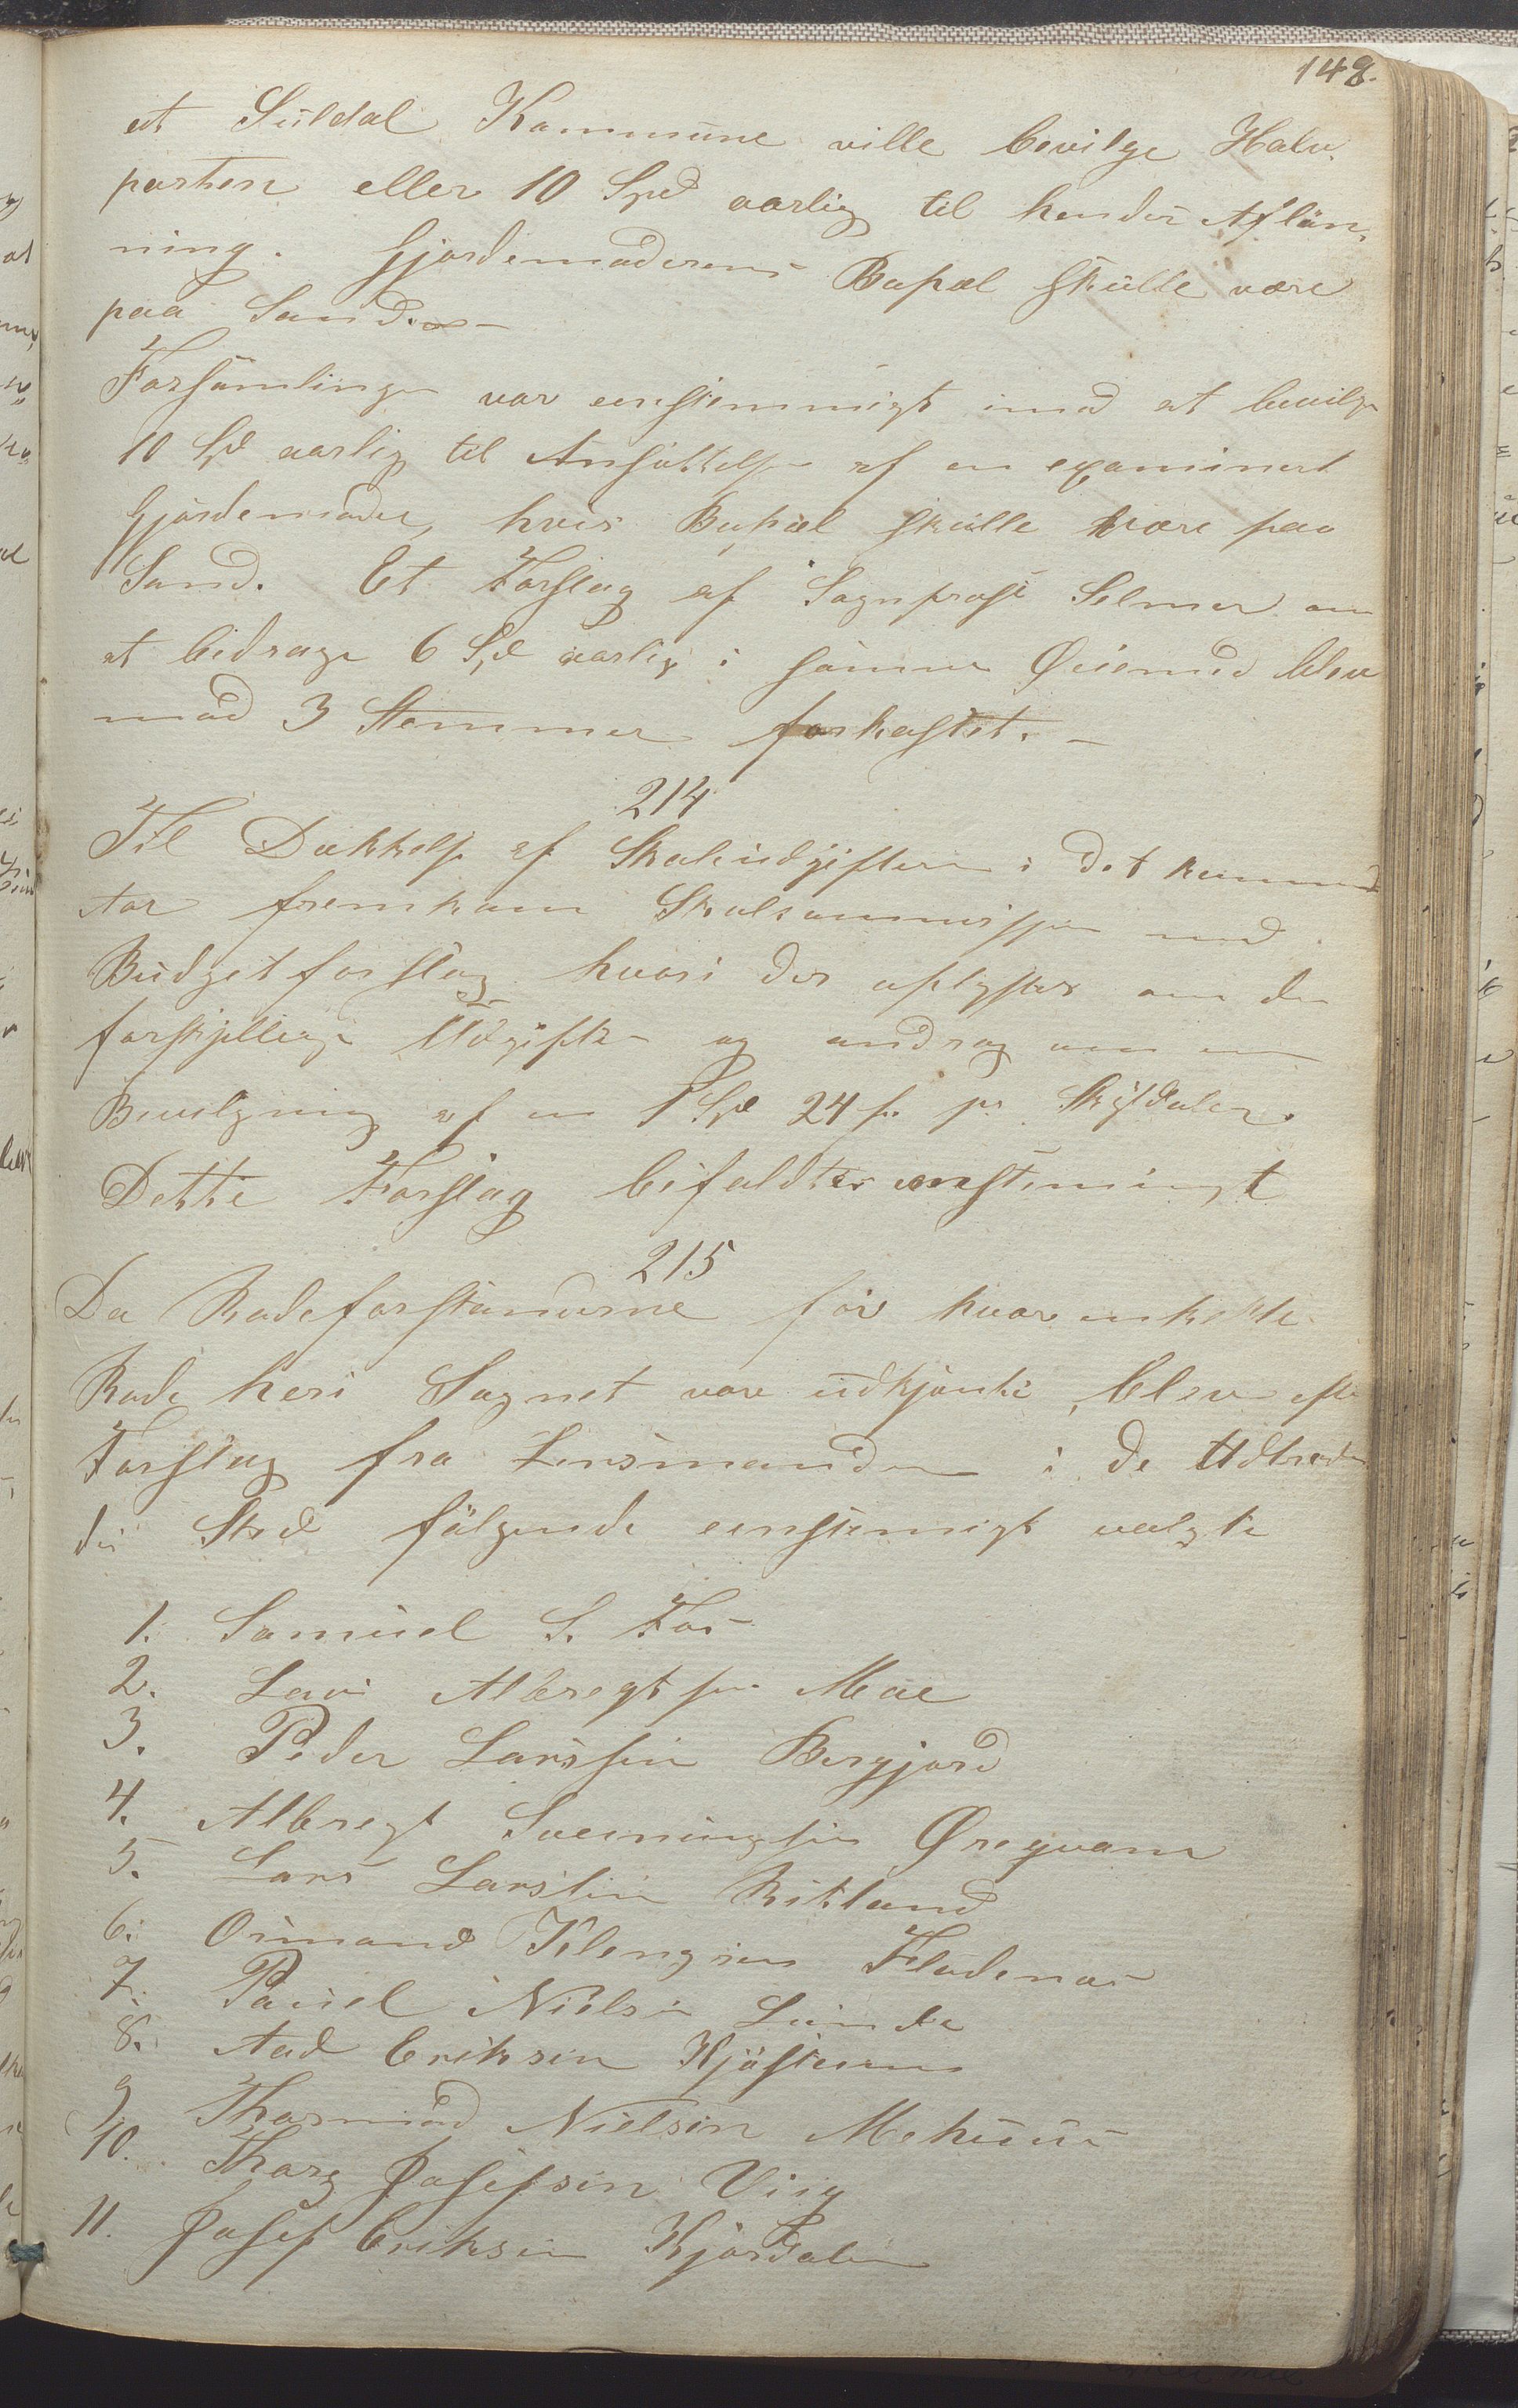 148.
at Suldal Kommune ville bevilge Halv-
parten eller 10 Spd aarlig til hendes Aflön-
ning. Gjordemoderens Bopæl skulle være
paa Sand.
Forsamlingen var eenstemmigt imod at bevilge
10 Spd aarlig til Ansættelse af en examineret
Gjordemoder, hvis Bopæl skulle være paa
Sand. Et Forslag af Sognprest Selmer om
at bidrage 6 Spd aarlig i samme Øiemed blev
mod 3 Stemmer forkastet. -
214
Til Dækkelse af Skoleudgifterne i det kommende
Aar fremkom Skolecommissjon med
Budgetforslag hvori der oplystes om de
forskjellige Udgifter og androg om en
Bevilgning af en 1 Spd 24 s. pr Skyldaler.
Dette Forslag bifaldtes eenstemmigt
215
Da Rodeforstanderne for hver enkelte
Rode heri Sognet vare udtjente, blev efter
Forslag fra Lensmanden i de Udtræden-
des Sted fölgende eenstemmigt valgte
1. Samuel S. Fos
2. Lars Albregtsen Moe
3. Peder Larssen Bergjord
4. Albregt Sveiningsen Øregvam
5. Lars Larssen Ritland
6. Ormand Klengsen Fladenæs
7. Poul Nielsen Lunde
8. Aad Eriksen Kjösteim
9 Thormod Nielsen Mehuus
10. Thore Josefsen Viig
11. Josef Eriksen Kjördalen